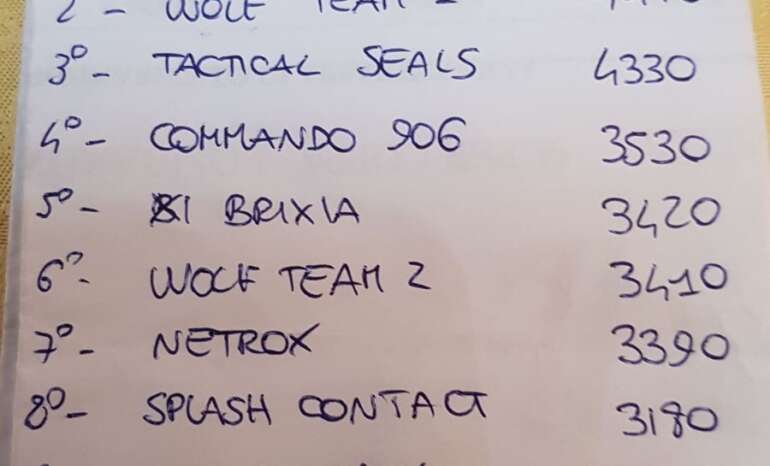 2 - WOLF TEAM
3º- TACTICAL SEALS 4330
4º- COMMANDO 906 3530
5º- BRIXIA 3420
6º- WOLF TEAM 2 3410
7º- NETROX 3390
8º- SPLASH CONTACT 3180